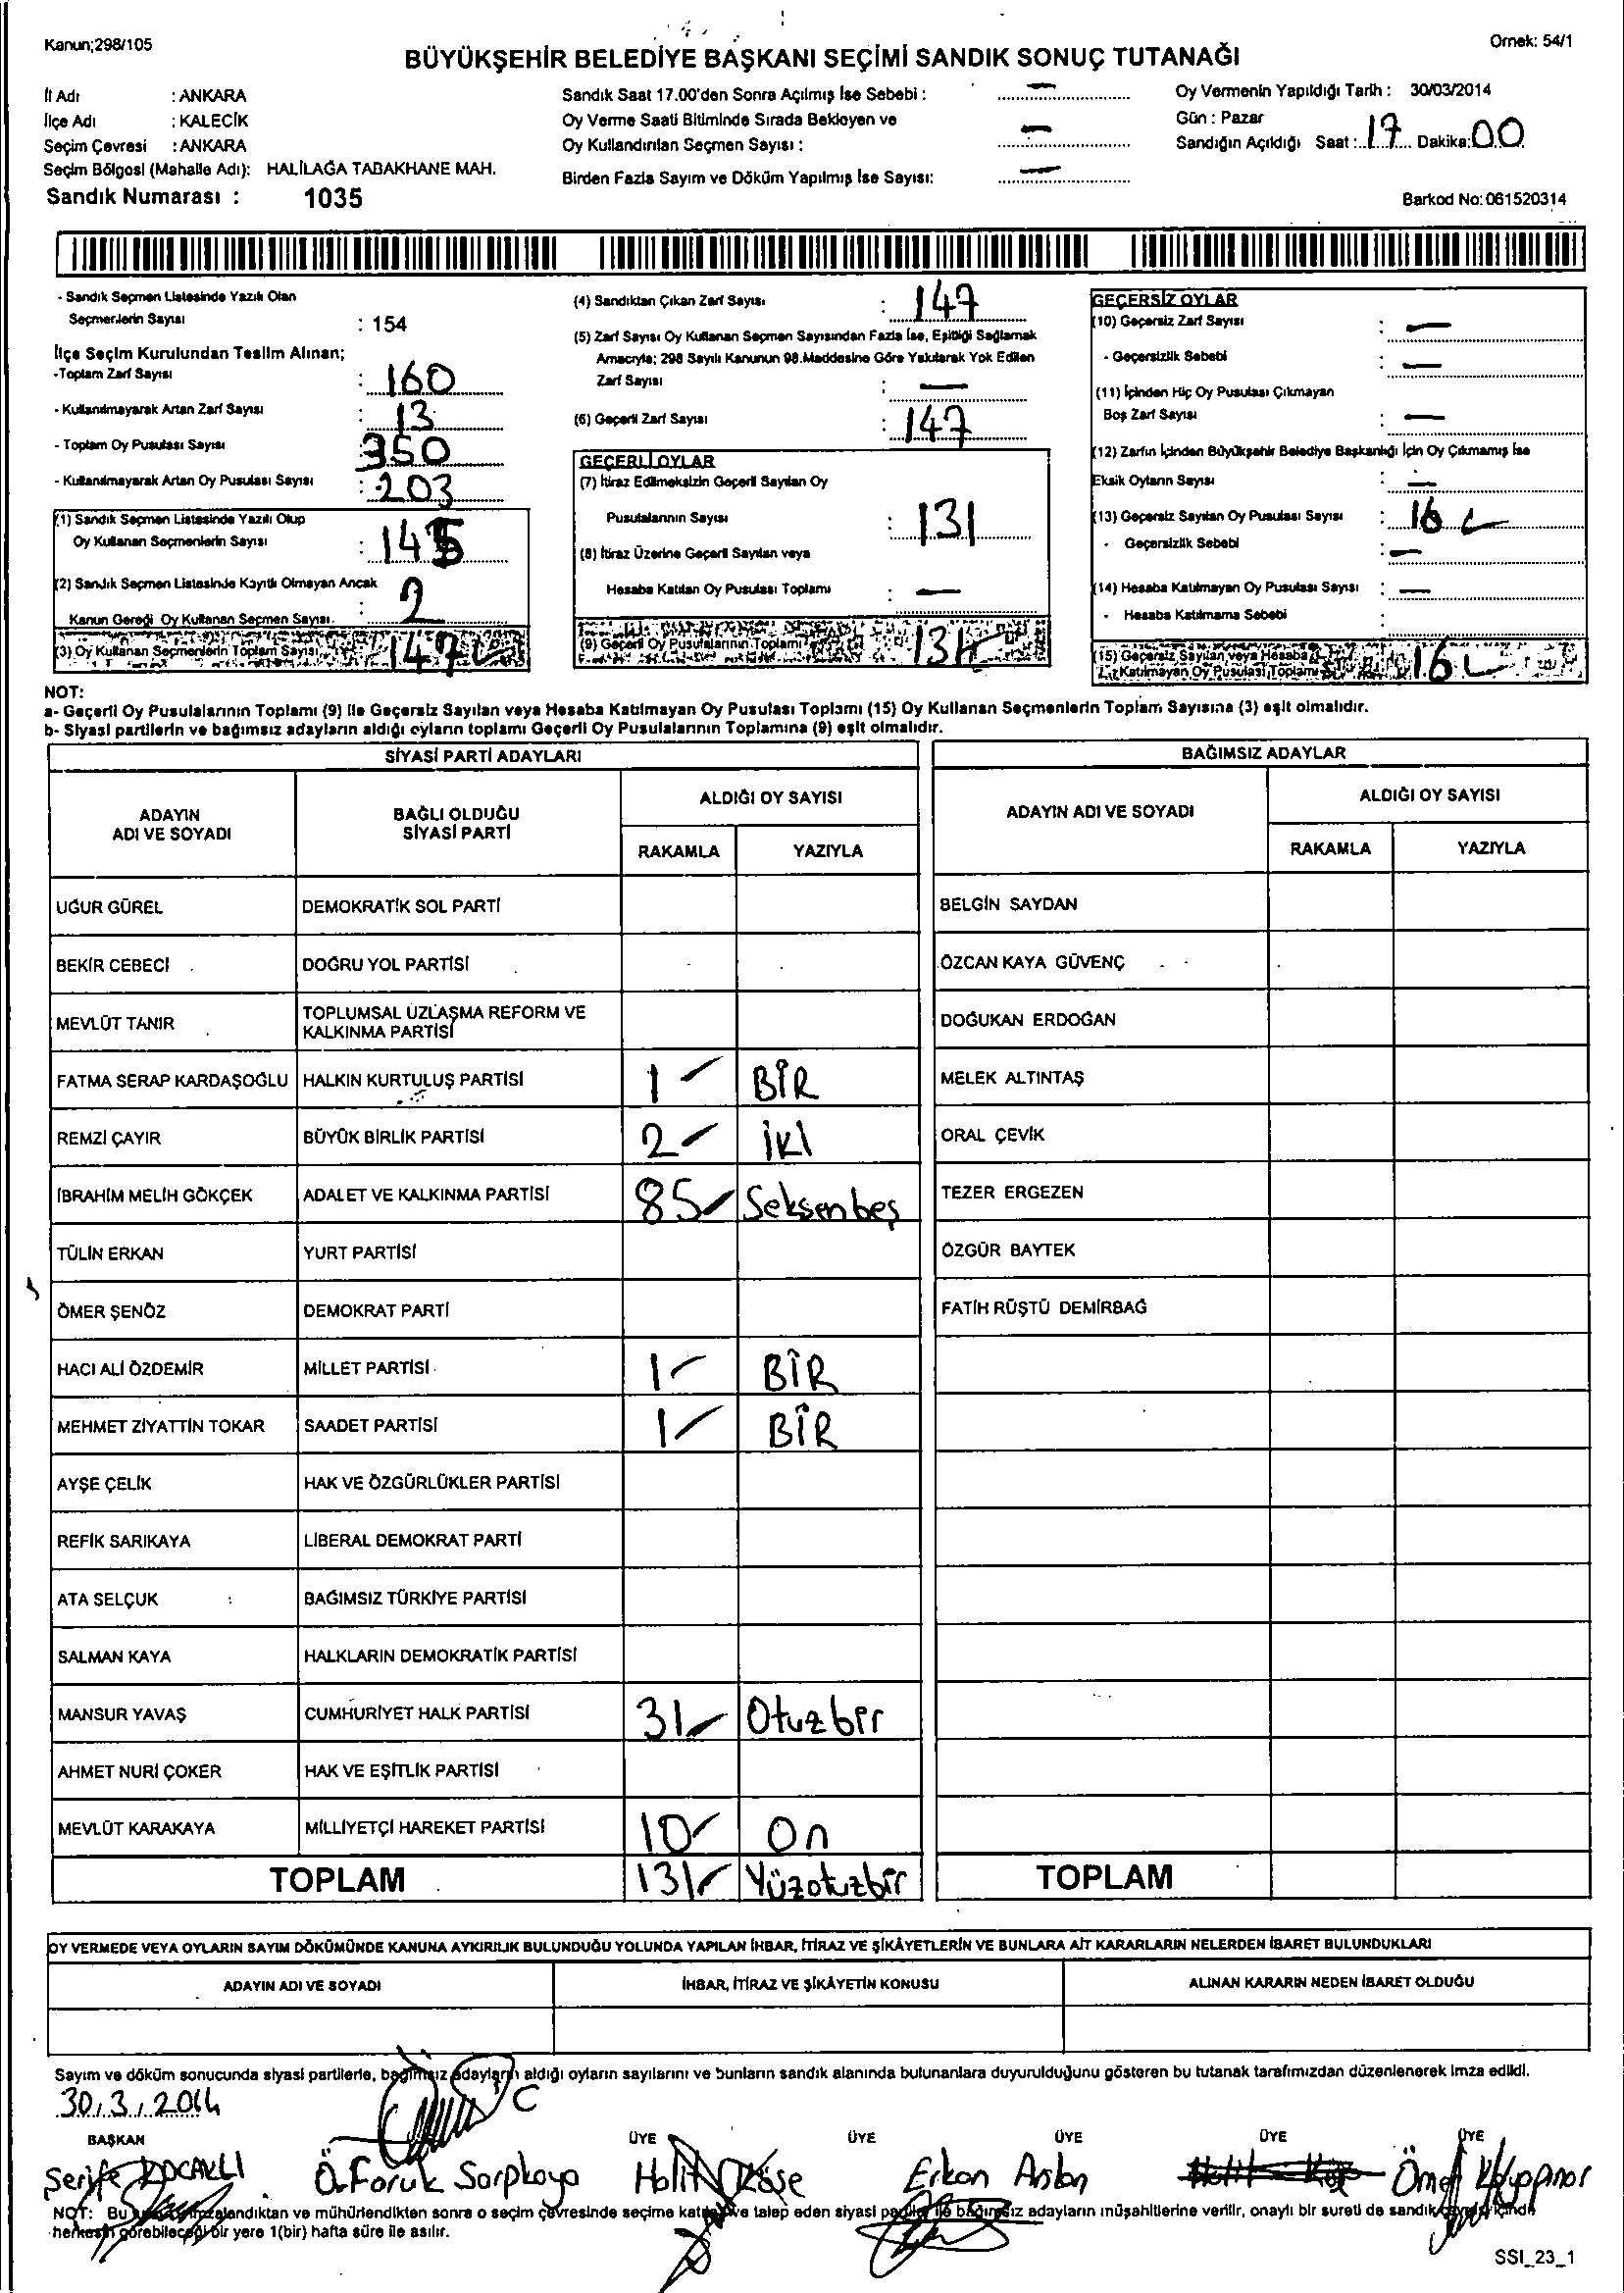 Kanun;298/105
Örnek: 54/1
BÜYÜKŞEHİR BELEDİYE BAŞKANI SEÇİMİ SANDIK SONUÇ TUTANAĞI
İl Adı : ANKARA
İlçe Adı : KALECİK
Seçim Çevresi : ANKARA
Seçim Bölgesi (Mahalle Adı): HALİLAĞA TABAKHANE MAH.
Sandık Numarası : 1035
Sandık Saat 17.00'den Sonra Açılmış İse Sebebi : —
Oy Verme Saati Bitiminde Sırada Bekleyen ve
Oy Kullandırılan Seçmen Sayısı : —
Birden Fazla Sayım ve Döküm Yapılmış İse Sayısı: —
Oy Vermenin Yapıldığı Tarih : 30/03/2014
Gün : Pazar
Sandığın Açıldığı Saat : 17 Dakika: 00
Barkod No: 061520314
- Sandık Seçmen Listesinde Yazılı Olan
Seçmenlerin Sayısı : 154
İlçe Seçim Kurulundan Teslim Alınan;
-Toplam Zarf Sayısı : 160
- Kullanılmayarak Artan Zarf Sayısı : 13
- Toplam Oy Pusulası Sayısı : 350
- Kullanılmayarak Artan Oy Pusulası Sayısı : 203
(1) Sandık Seçmen Listesinde Yazılı Olup
Oy Kullanan Seçmenlerin Sayısı : 145
(2) Sandık Seçmen Listesinde Kayıtlı Olmayan Ancak
Kanun Gereği Oy Kullanan Seçmen Sayısı : 2
(3) Oy Kullanan Seçmenlerin Toplam Sayısı 147
(4) Sandıktan Çıkan Zarf Sayısı : 147
(5) Zarf Sayısı Oy Kullanan Seçmen Sayısından Fazla İse, Eşitliği Sağlamak
Amacıyla; 298 Sayılı Kanunun 98.Maddesine Göre Yakılarak Yok Edilen
Zarf Sayısı : —
(6) Geçerli Zarf Sayısı : 147
GEÇERLİ OYLAR
(7) İtiraz Edilmeksizin Geçerli Sayılan Oy
Pusulalarının Sayısı : 131
(8) İtiraz Üzerine Geçerli Sayılan veya
Hesaba Katılan Oy Pusulası Toplamı : —
(9) Geçerli Oy Pusulalarının Toplamı 131
GEÇERSİZ OYLAR
(10) Geçersiz Zarf Sayısı : —
- Geçersizlik Sebebi : —
(11) İçinden Hiç Oy Pusulası Çıkmayan
Boş Zarf Sayısı : —
(12) Zarfın İçinden Büyükşehir Belediye Başkanlığı İçin Oy Çıkmamış İse
Eksik Oyların Sayısı : —
(13) Geçersiz Sayılan Oy Pusulası Sayısı : 16
- Geçersizlik Sebebi : —
(14) Hesaba Katılmayan Oy Pusulası Sayısı : —
- Hesaba Katılmama Sebebi
(15) Geçersiz Sayılan veya Hesaba
Katılmayan Oy Pusulası Toplamı 16
NOT:
a- Geçerli Oy Pusulalarının Toplamı (9) ile Geçersiz Sayılan veya Hesaba Katılmayan Oy Pusulası Toplamı (15) Oy Kullanan Seçmenlerin Toplam Sayısına (3) eşit olmalıdır.
b- Siyasi partilerin ve bağımsız adayların aldığı oyların toplamı Geçerli Oy Pusulalarının Toplamına (9) eşit olmalıdır.
SİYASİ PARTİ ADAYLARI
ADAYIN ADI VE SOYADI
BAĞLI OLDUĞU SİYASİ PARTİ
ALDIĞI OY SAYISI
RAKAMLA YAZIYLA
UĞUR GÜREL DEMOKRATİK SOL PARTİ
BEKİR CEBECİ DOĞRU YOL PARTİSİ
MEVLÜT TANIR TOPLUMSAL UZLAŞMA REFORM VE KALKINMA PARTİSİ
FATMA SERAP KARDAŞOĞLU HALKIN KURTULUŞ PARTİSİ 1 BİR
REMZİ ÇAYIR BÜYÜK BİRLİK PARTİSİ 2 İKİ
İBRAHİM MELİH GÖKÇEK ADALET VE KALKINMA PARTİSİ 85 Seksenbeş
TÜLİN ERKAN YURT PARTİSİ
ÖMER ŞENÖZ DEMOKRAT PARTİ
HACI ALİ ÖZDEMİR MİLLET PARTİSİ 1 BİR
MEHMET ZİYATTİN TOKAR SAADET PARTİSİ 1 BİR
AYŞE ÇELİK HAK VE ÖZGÜRLÜKLER PARTİSİ
REFİK SARIKAYA LİBERAL DEMOKRAT PARTİ
ATA SELÇUK BAĞIMSIZ TÜRKİYE PARTİSİ
SALMAN KAYA HALKLARIN DEMOKRATİK PARTİSİ
MANSUR YAVAŞ CUMHURİYET HALK PARTİSİ 31 Otuzbir
AHMET NURİ ÇOKER HAK VE EŞİTLİK PARTİSİ
MEVLÜT KARAKAYA MİLLİYETÇİ HAREKET PARTİSİ 10 On
TOPLAM 131 Yüzotuzbir
BAĞIMSIZ ADAYLAR
ADAYIN ADI VE SOYADI
ALDIĞI OY SAYISI
RAKAMLA YAZIYLA
BELGİN SAYDAN
ÖZCAN KAYA GÜVENÇ
DOĞUKAN ERDOĞAN
MELEK ALTINTAŞ
ORAL ÇEVİK
TEZER ERGEZEN
ÖZGÜR BAYTEK
FATİH RÜŞTÜ DEMİRBAĞ
TOPLAM
OY VERMEDE VEYA OYLARIN SAYIM DÖKÜMÜNDE KANUNA AYKIRILIK BULUNDUĞU YOLUNDA YAPILAN İHBAR, İTİRAZ VE ŞİKÂYETLERİN VE BUNLARA AİT KARARLARIN NELERDEN İBARET BULUNDUKLARI
ADAYIN ADI VE SOYADI
İHBAR, İTİRAZ VE ŞİKÂYETİN KONUSU
ALINAN KARARIN NEDEN İBARET OLDUĞU
Sayım ve döküm sonucunda siyasi partilerle, bağımsız adayların aldığı oyların sayılarını ve bunların sandık alanında bulunanlara duyurulduğunu gösteren bu tutanak tarafımızdan düzenlenerek imza edildi.
30.3.2014
BAŞKAN ÜYE ÜYE ÜYE ÜYE ÜYE
Şerife KOCAKLI Ö.Foruk Sarpkaya Halit Köse Erkan Arslan Ömer
NOT: Bu imzalandıktan ve mühürlendikten sonra o seçim çevresinde seçime katılan ve talep eden siyasi partiler ile bağımsız adayların müşahitlerine verilir, onaylı bir sureti de sandık
herkesin görebileceği bir yere 1(bir) hafta süre ile asılır.
SSI_23_1